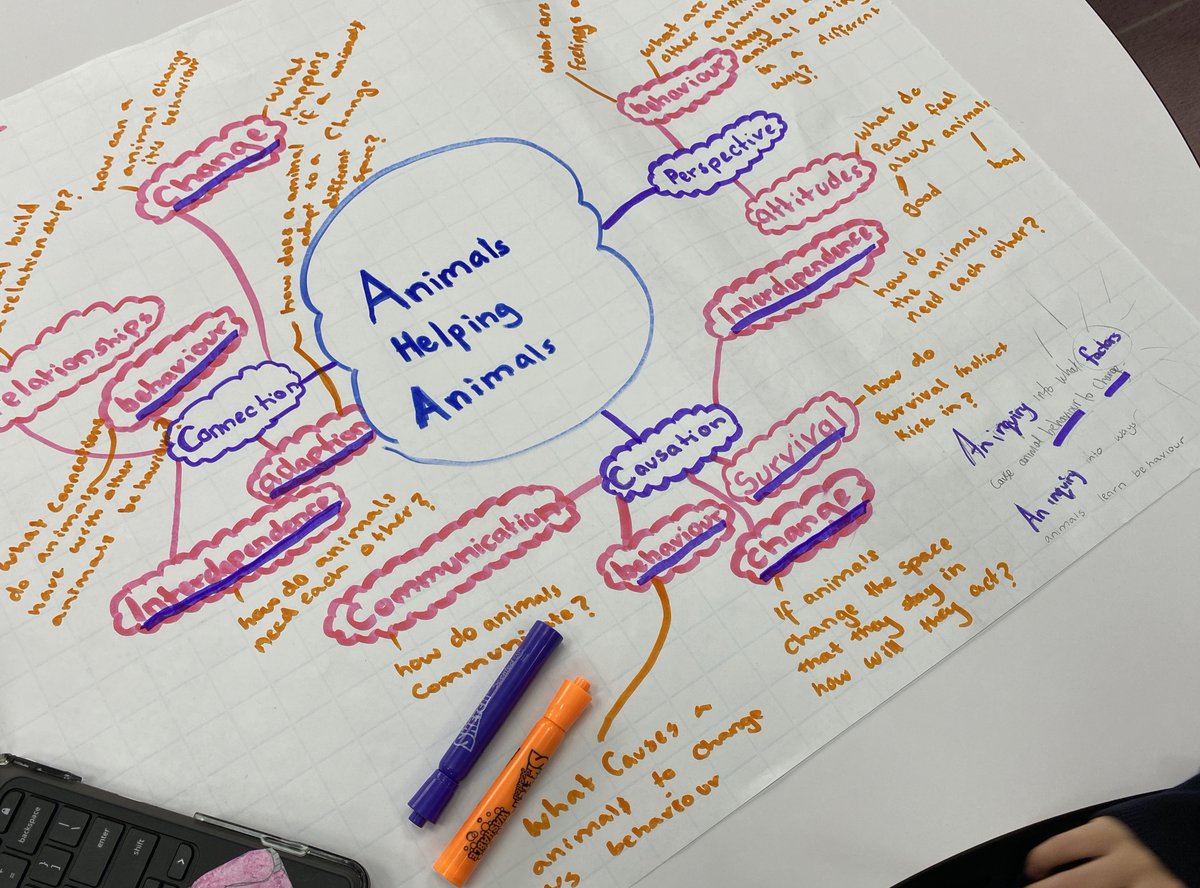 Animals
Helping
Animals
Perspective
behaviour
What are
feelings
What are
other
behaviour
they see
animal acting
in a different
way?
Attitudes
What do
People feel
about animals
good
bad
Interdependence
how do
the animals
need each other?
Causation
Survival
how do
Survival instinct
Kick in?
Change
If animals
change the space
that they stay in
how will they act?
behaviour
What Causes a
animals to change
behaviour
Communication
how do animals
Communicate?
Connection
Change
how can a
animal change
its behaviour
What
happens
if a animals
change
space?
adaption
how does a animal
adapt to a
different
Interdependence
how do animals
need each other?
behaviour
What connections
do animals
have with other
animals
behaviour
relationships
build
relationship?
An inquiry into what factors
Cause animal behaviour to change
An inquiry into ways
animals learn behaviour
backspace
enter
shift